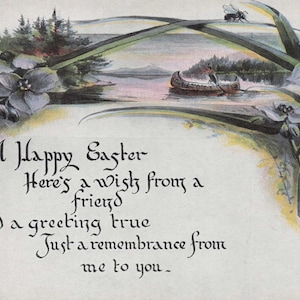 A Happy Easter
Here's a wish from a
friend
a greeting true
Just a remembrance from
me to you_